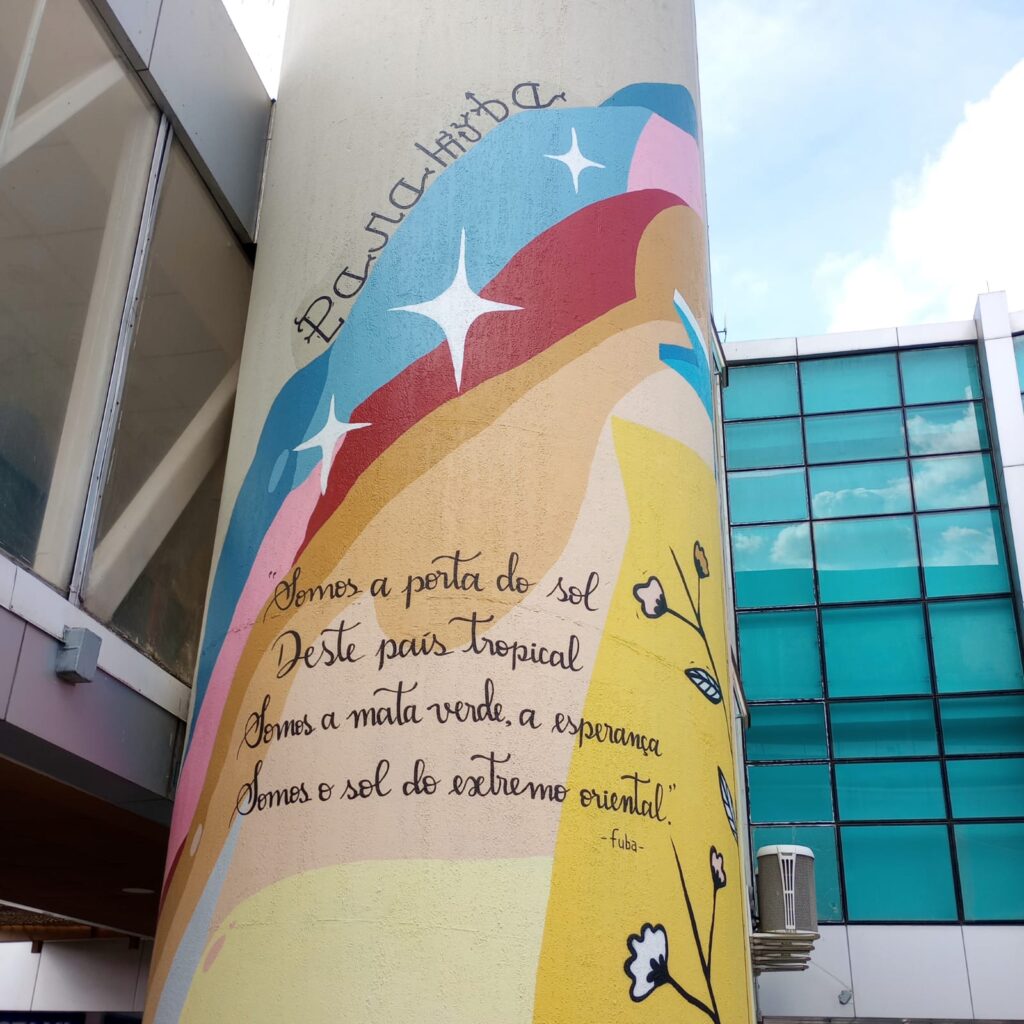 Paraiba
"Somos a porta do sol
Deste país tropical
Somos a mata verde, a esperança
Somos o sol do extremo oriental."
-fuba-